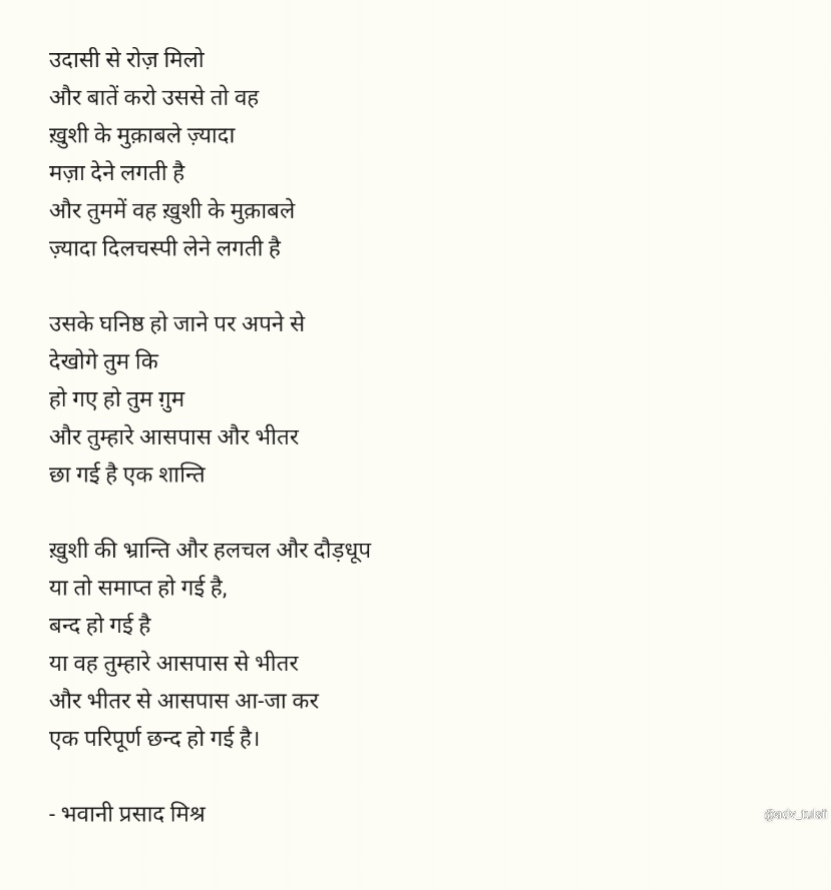 उदासी से रोज़ मिलो
और बातें करो उससे तो वह
ख़ुशी के मुक़ाबले ज़्यादा
मज़ा देने लगती है
और तुममें वह ख़ुशी के मुक़ाबले
ज़्यादा दिलचस्पी लेने लगती है
उसके घनिष्ठ हो जाने पर अपने से
देखोगे तुम कि
हो गए हो तुम ग़ुम
और तुम्हारे आसपास और भीतर
छा गई है एक शान्ति
ख़ुशी की भ्रान्ति और हलचल और दौड़धूप
या तो समाप्त हो गई है,
बन्द हो गई है
या वह तुम्हारे आसपास से भीतर
और भीतर से आसपास आ-जा कर
एक परिपूर्ण छन्द हो गई है।
- भवानी प्रसाद मिश्र